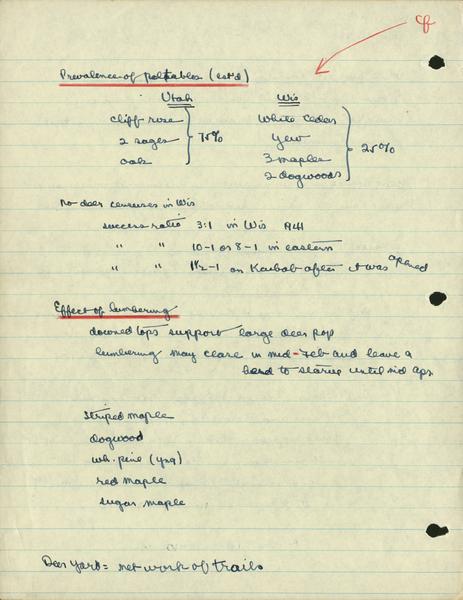 cf
Prevalence of palatables (est'd)
Utah Wis
cliff rose White Cedar
2 sages 75% Yew
oak 3 maples 25%
2 dogwoods
No deer censuses in Wis
success ratio 3:1 in Wis 1941
" " 10-1 or 8-1 in eastern
" " 1 1/2-1 on Kaibab after it was opened
Effect of lumbering
downed tops support large deer pop
lumbering may cease in mid-Feb and leave a
herd to starve until mid Apr.
striped maple
dogwood
wh. pine (yng)
red maple
sugar maple
Deer yard = network of trails